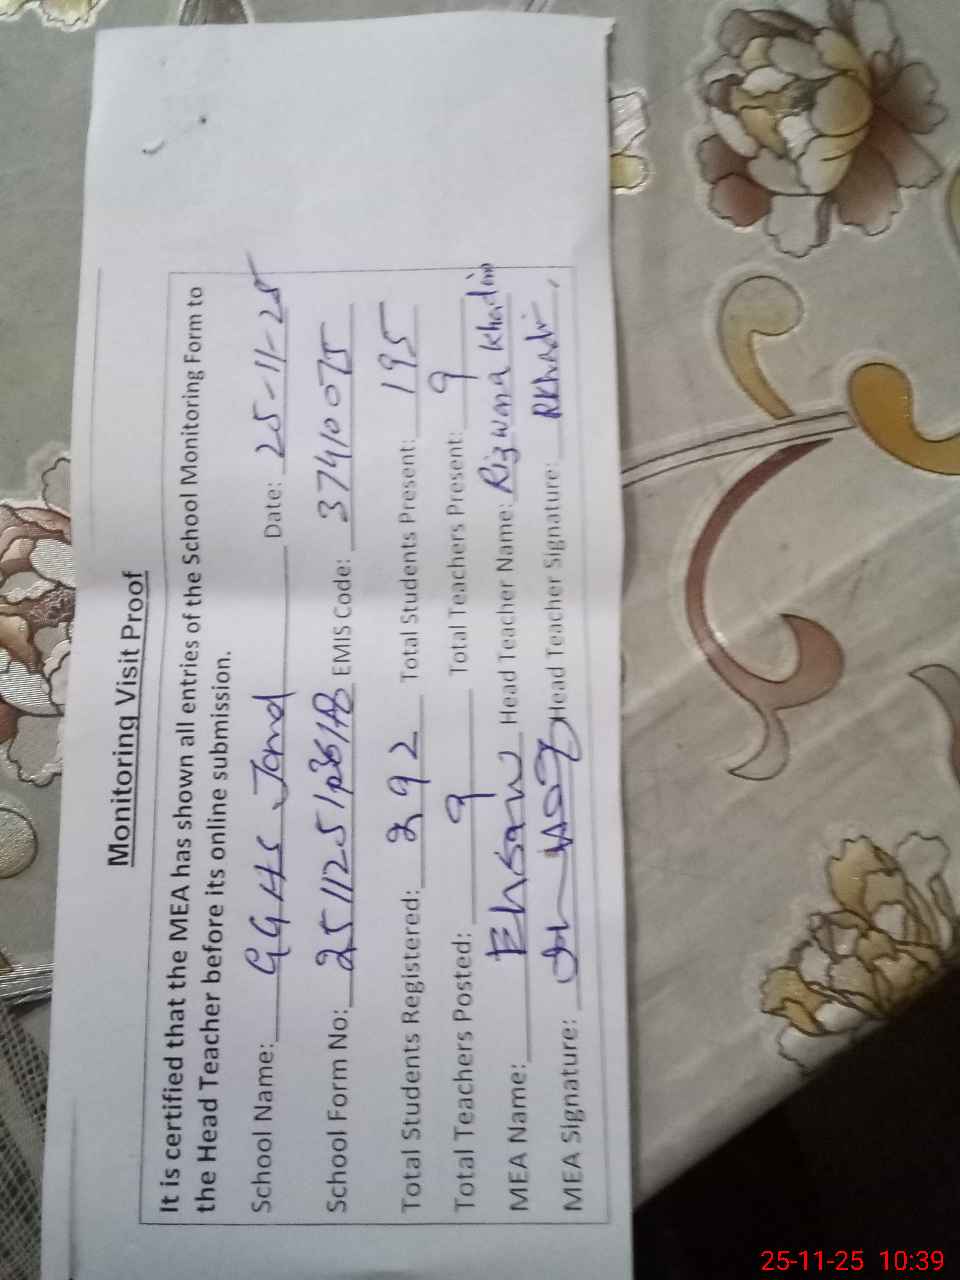 Monitoring Visit Proof
It is certified that the MEA has shown all entries of the School Monitoring Form to
the Head Teacher before its online submission.
School Name: GGHS Jand Date: 25-11-25
School Form No: EMIS Code: 37410075
Total Students Registered: 292 Total Students Present: 195
Total Teachers Posted: 9 Total Teachers Present: 9
MEA Name: Ehsan Head Teacher Name: Rizwana Khadim
MEA Signature: Head Teacher Signature:
25-11-25 10:39